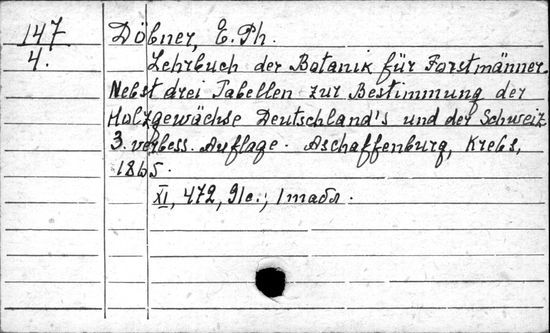 147
4.
Döbner, E. Ph.
Lehrbuch der Botanik für Forstmänner.
Nebst drei Tabellen zur Bestimmung der
Holzgewächse Deutschland's und der Schweiz
3. verbess. Auflage. Aschaffenburg, Krebs,
1865.
XI, 472, 91с.; 1 табл.